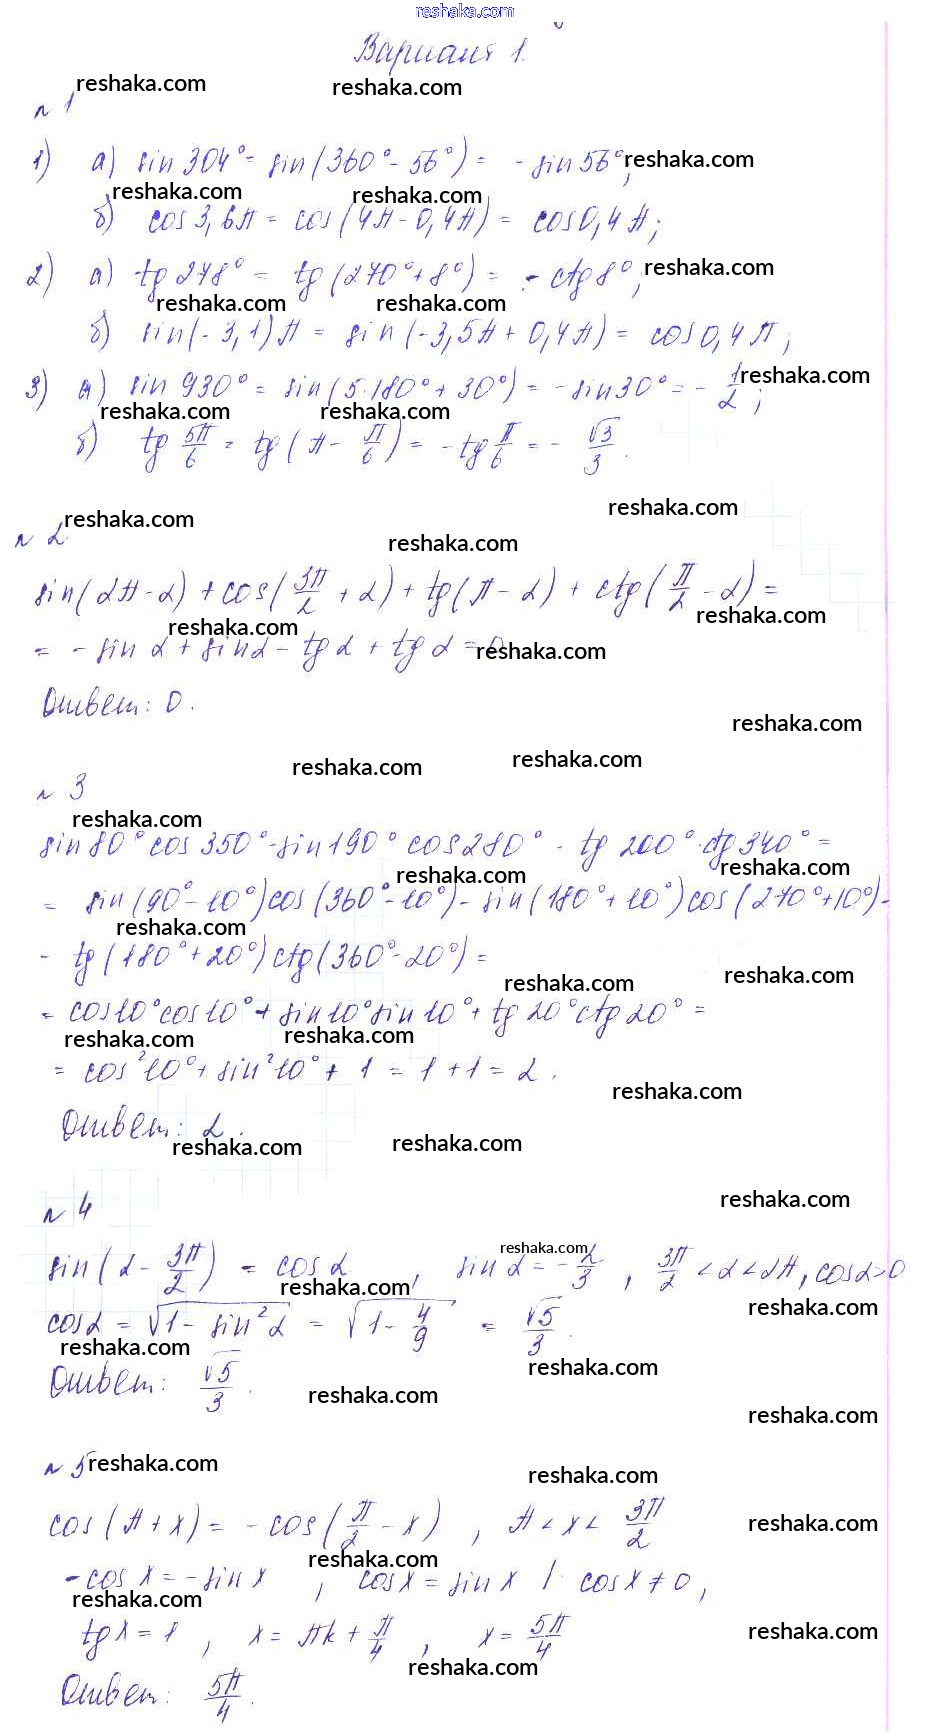 reshaka.com
Вариант 1.
reshaka.com reshaka.com
№ 1
1) а) sin 304° = sin(360° - 56°) = - sin 56°; reshaka.com
reshaka.com reshaka.com
б) cos 3,6π = cos(4π - 0,4π) = cos 0,4π;
2) а) tg 278° = tg(270° + 8°) = - ctg 8°; reshaka.com
reshaka.com reshaka.com
б) sin(-3,1)π = sin(-3,5π + 0,4π) = cos 0,4π;
3) а) sin 930° = sin(5·180° + 30°) = - sin 30° = - 1/2; reshaka.com
reshaka.com reshaka.com
б) tg 5π/6 = tg(π - π/6) = - tg π/6 = - √3/3.
reshaka.com reshaka.com
№ 2
reshaka.com
sin(2π - α) + cos(3π/2 + α) + tg(π - α) + ctg(π/2 - α) =
reshaka.com reshaka.com
= - sin α + sin α - tg α + tg α = 0 reshaka.com
Ответ: 0.
reshaka.com
reshaka.com reshaka.com
№ 3
reshaka.com
sin 80° cos 350° - sin 190° cos 280° - tg 200° · ctg 340° =
reshaka.com reshaka.com
= sin(90° - 10°) cos(360° - 10°) - sin(180° + 10°) cos(270° + 10°) -
reshaka.com
- tg(180° + 20°) ctg(360° - 20°) =
reshaka.com reshaka.com
= cos 10° cos 10° + sin 10° sin 10° + tg 20° ctg 20° =
reshaka.com reshaka.com
= cos² 10° + sin² 10° + 1 = 1 + 1 = 2.
reshaka.com
Ответ: 2.
reshaka.com reshaka.com
reshaka.com
№ 4
reshaka.com
sin(α - 3π/2) = cos α, sin α = - 2/3, 3π/2 < α < 2π, cos α > 0
reshaka.com reshaka.com
cos α = √(1 - sin² α) = √(1 - 4/9) = √5/3.
reshaka.com reshaka.com
Ответ: √5/3.
reshaka.com reshaka.com
№ 5 reshaka.com
reshaka.com
cos(π + x) = - cos(π/2 - x), π < x < 3π/2 reshaka.com
reshaka.com
- cos x = - sin x, cos x = sin x | : cos x ≠ 0,
reshaka.com
tg x = 1, x = πk + π/4, x = 5π/4 reshaka.com
reshaka.com
Ответ: 5π/4.